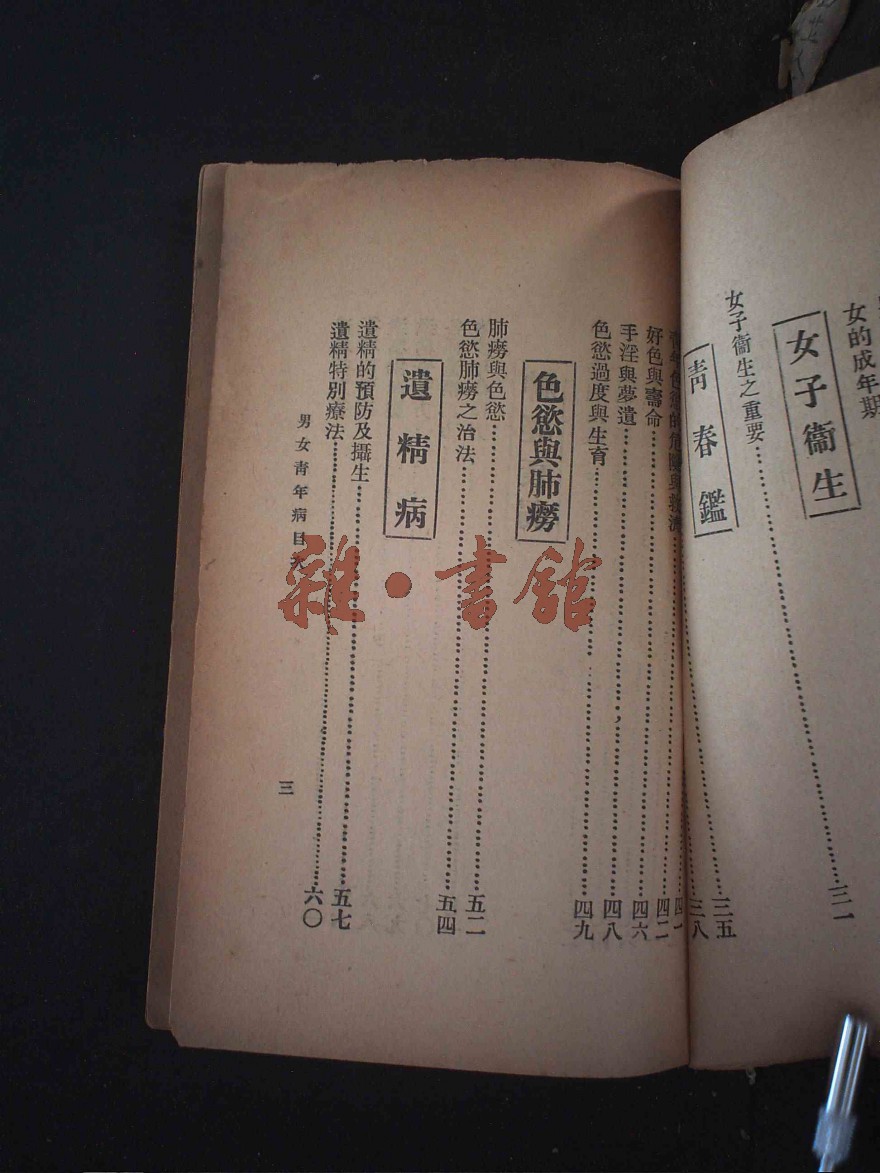 女的成年期
女子衞生
女子衞生之重要……三一
三五
青春鑑
三八
四一
色慾的危險與救濟……四二
好色與壽命……四六
手淫與夢遺……四八
色慾過度與生育……四九
色慾與肺癆
肺癆與色慾……五二
色慾肺癆之治法……五四
遺精病
遺精的預防及攝生……五七
遺精特別療法……六〇
男女青年病目次
三
雜·書館